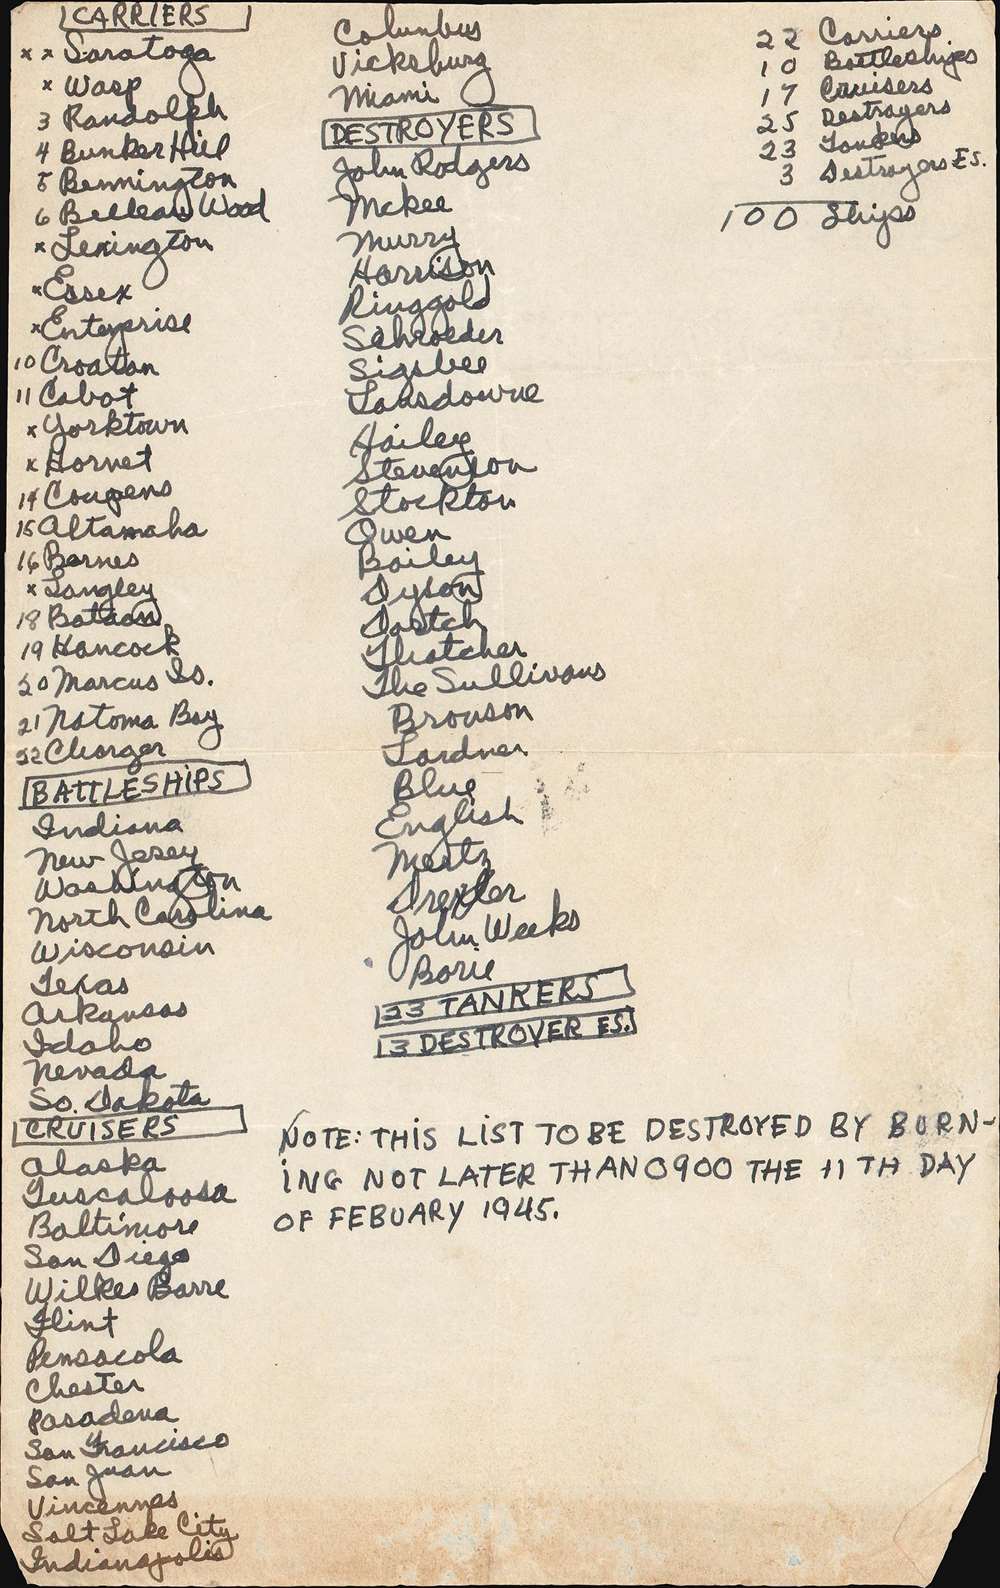 CARRIERS
x x Saratoga
x Wasp
3 Randolph
4 Bunker Hill
5 Bennington
6 Belleau Wood
x Lexington
x Essex
x Enterprise
10 Croatan
11 Cabot
x Yorktown
x Hornet
14 Coupens
15 Altamaha
16 Barnes
x Langley
18 Bataan
19 Hancock
20 Marcus Is.
21 Natoma Bay
22 Charger
BATTLESHIPS
Indiana
New Jersey
Washington
North Carolina
Wisconsin
Texas
Arkansas
Idaho
Nevada
So. Dakota
CRUISERS
Alaska
Tuscaloosa
Baltimore
San Diego
Wilkes Barre
Flint
Pensacola
Chester
Pasadena
San Francisco
San Juan
Vincennes
Salt Lake City
Indianapolis
Columbus
Vicksburg
Miami
DESTROYERS
John Rodgers
McKee
Murry
Harrison
Ringgold
Schroeder
Sigsbee
Lansdowne
Hailey
Stevenson
Stockton
Owen
Bailey
Dyson
Dortch
Thatcher
The Sullivans
Bronson
Lardner
Blue
English
Mertz
Drexler
John Weeks
Borie
23 TANKERS
3 DESTROYER ES.
NOTE: THIS LIST TO BE DESTROYED BY BURN-
ING NOT LATER THAN 0900 THE 11TH DAY
OF FEBUARY 1945.
22 Carriers
10 Battleships
17 Cruisers
25 Destroyers
23 Tankers
3 Destroyers Es.
100 Ships